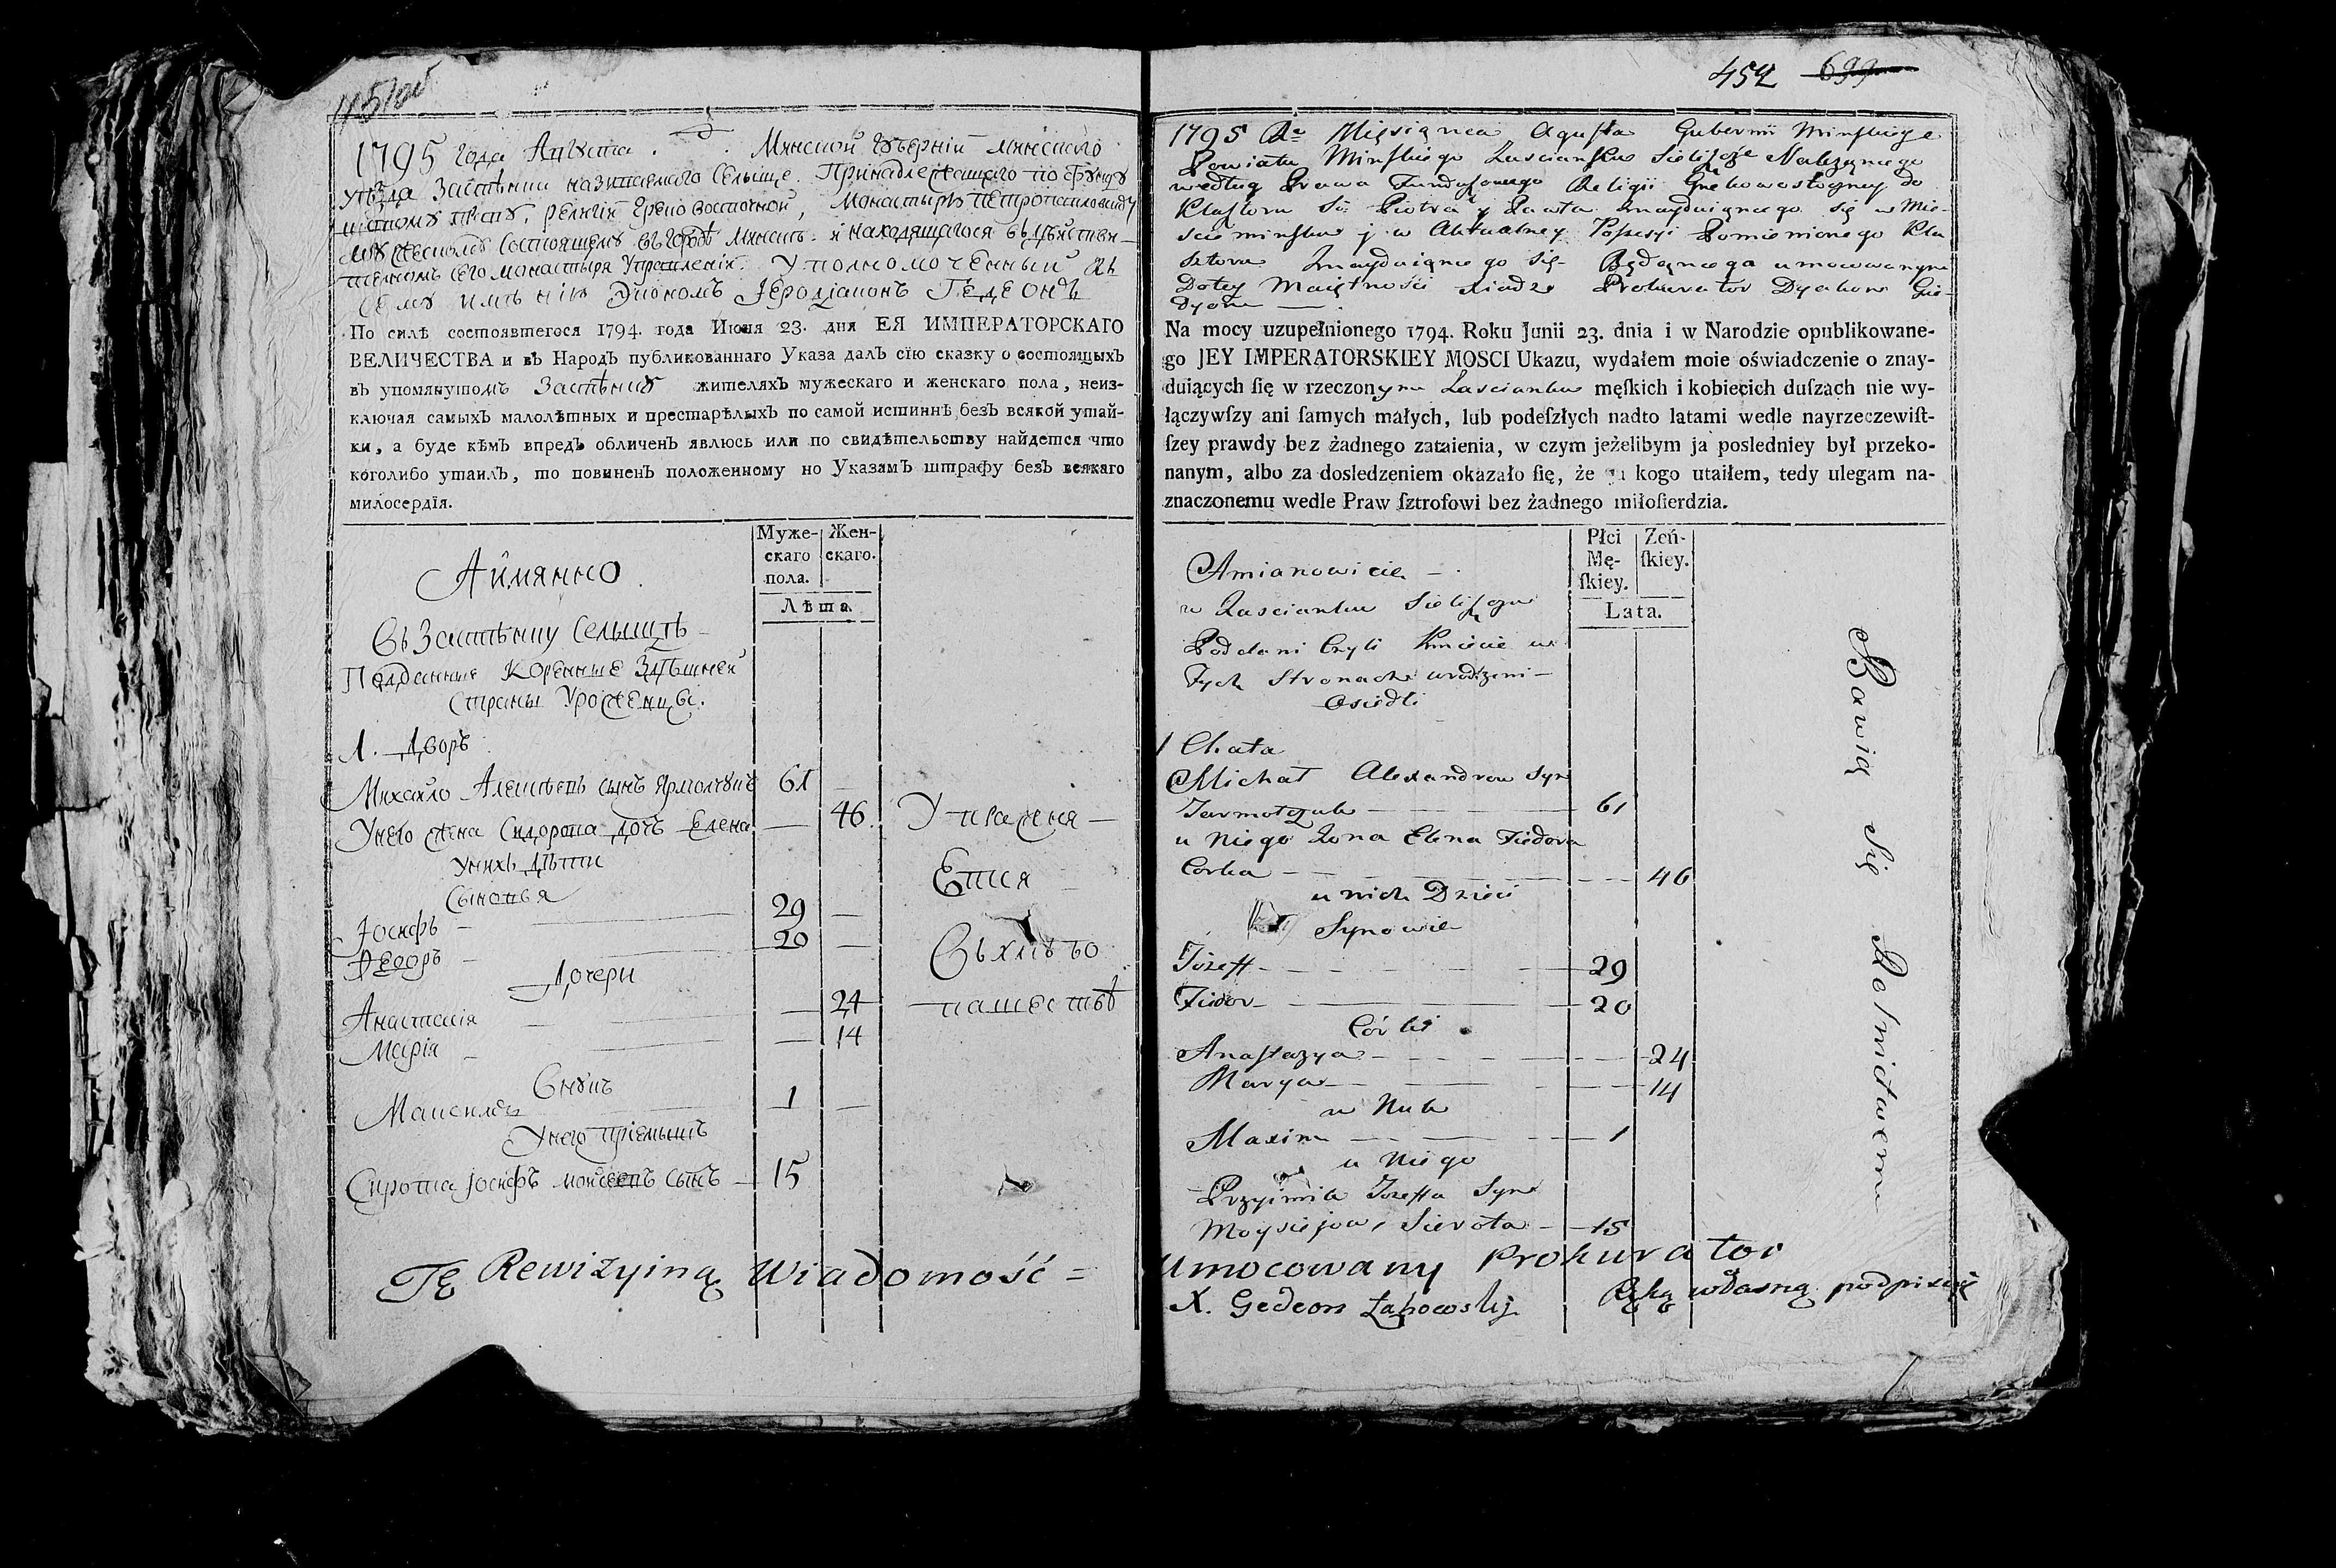 1795 года Августа. Минской Губернiи Минского
уѣзда Застѣнки називаемаго Сельище. Принадлежащаго по фунду
Религiи Греко восточной, Монастырю Петропавловску
состоящему въ городѣ Минскѣ и находящагося въ дѣйстви-
тельномъ сего монастыря Управленiи. Уполномоченный къ
сему имѣнiю Экономъ Iеродiаконъ Гедеонъ
По силѣ состоявшегося 1794. года Июня 23. дня ЕЯ ИМПЕРАТОРСКАГО
ВЕЛИЧЕСТВА и въ Народъ публикованнаго Указа далъ сїю сказку о состоящыхъ
въ упомянутомъ Застѣнкѣ жителяхъ мужескаго и женскаго пола, неиз-
ключая самыхъ малолѣтныхъ и престарѣлыхъ по самой истиннѣ безъ всякой утай-
ки, а буде кѣмъ впредъ обличенъ явлюсь или по свидѣтельству найдется что
коголибо утаилъ, то повиненъ положенному по Указамъ штрафу безъ всякаго
милосердїя.
Аймянно
Муже-
скаго
пола.
Жен-
скаго.
Лѣта
Въ Застѣнку Сельищѣ
Подданные Коренные Здѣшней
Страны Уроженцы.
1. Дворъ
Михайло Алексѣевъ сынъ Ярмолчукъ 61
Унего жена Сидорова дочь Елена 46
Унихъ дѣти
Сыновья
Iосифъ 29
Федоръ 20
Дочери
Анастасiя 24
Марiя 14
Внукъ
Максимъ 1
Унего прiемышъ
Сирота Iосифъ моисеевъ сынъ 15
Упражня-
ются
въ хлѣбо
пашествѣ
Tę Rewizyiną Wiadomość =
452 699
1795 Ru Miesiąca Agusta Gubernii Minskiey
Powiatu Minskiego Zascianku Sieliszcze Nalezącego
według Prawa Funduszowego Religii Grekowostoczney do
Klasztoru Su Piotra y Pawła Znayduiącego się w Mie-
scie minsku j w Aktualney Possesyi Pomienionego Kla
sztoru Znayduiącego się- Będącego umocowanym
Dotey Maiętności xiadz Prokurator Dyakon Gie-
dyon
Na mocy uzupełnionego 1794. Roku Junii 23. dnia i w Narodzie opublikowane-
go JEY IMPERATORSKIEY MOSCI Ukazu, wydałem moie oświadczenie o znay-
duiących ſię w rzeczonym Zascianku męſkich i kobiecich duſzach nie wy-
łączywſzy ani ſamych małych, lub podeſzłych nadto latami wedle nayrzeczewiſt-
ſzey prawdy bez żadnego zataienia, w czym jeżelibym ja posledniey był przeko-
nanym, albo za dosledzeniem okazało ſię, że kogo utaiłem, tedy ulegam na-
znaczonemu wedle Praw ſztrofowi bez żadnego miłoſierdzia.
Amianowicie
Płci
Mę-
ſkiey.
Zeń-
ſkiey.
Lata.
w Zascianku Sieliszczu
Poddani Czyli Kmiecie w
Tych Stronach urodzeni
Osiedli
1 Chata
Michał Alexandrow Syn
Jarmołczuk 61
u Niego Zona Elena Fiedora
Corka 46
u nich Dzieci
Synowie
Jozeff 29
Fiedor 20
Córki
Anastazya 24
Marya 14
w Nuk
Maxim 1
u Niego
Przyimik Jozeffa Syn
Moysiejow, Sierota 15
Bawią się Rolnictwem
Umocowany Prokurator
X. Gedeon Ręką własną podpisuię